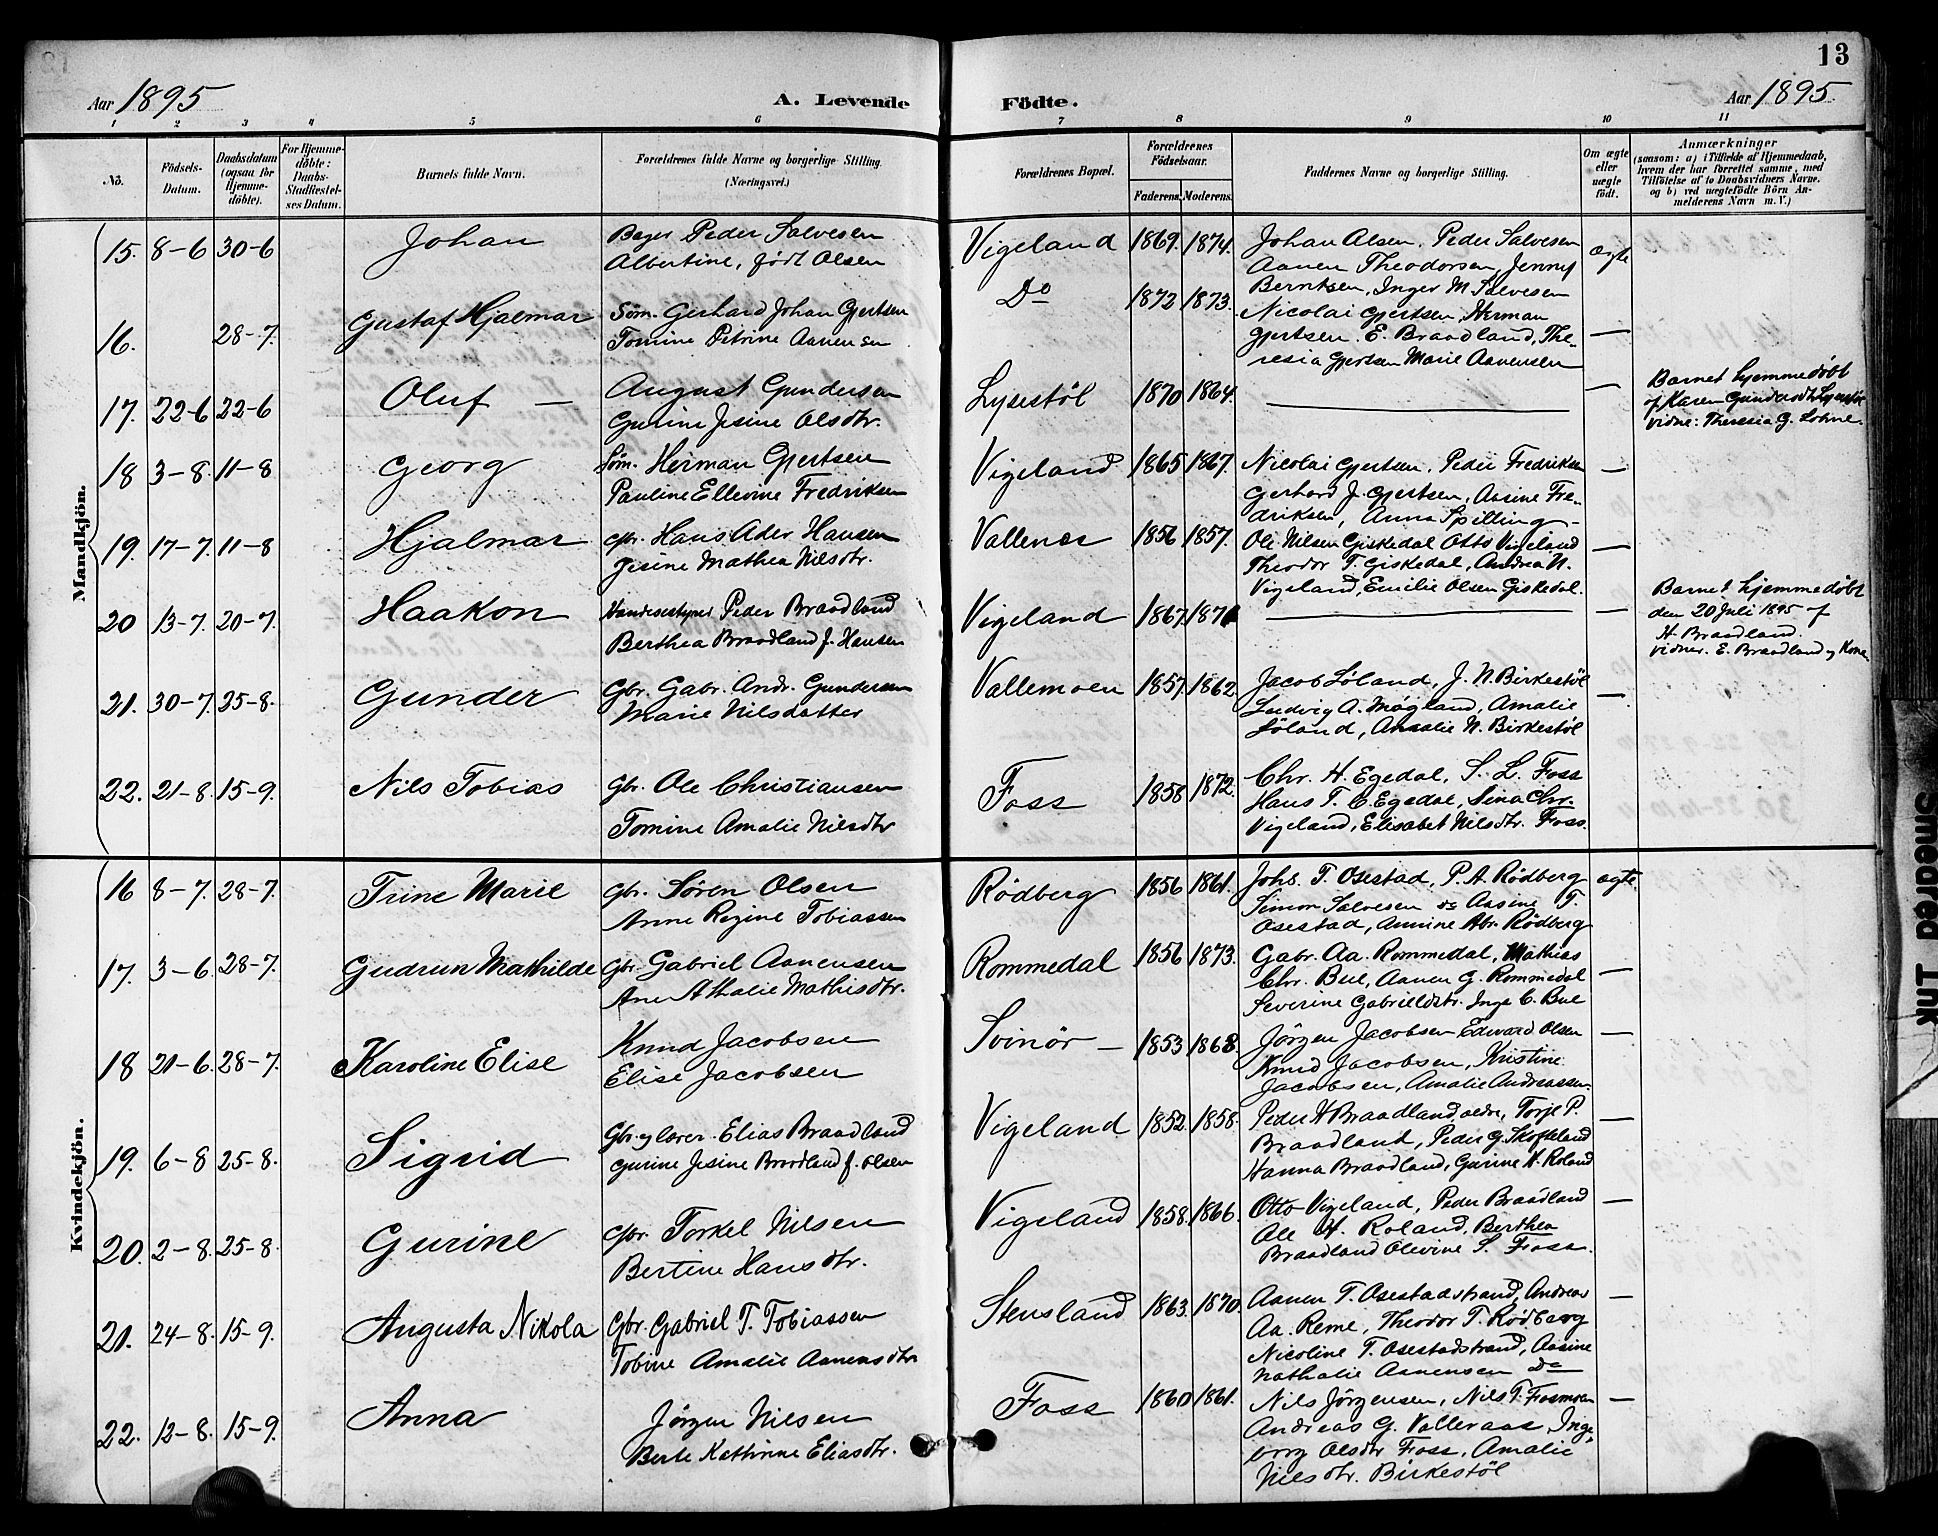 13
Aar 1895
A. Levende
Födte.
Aar 1895.
1 2 3 4 5 6 7 8 9 10 11
Nö.
Födsels-
Datum.
Daabsdatum
(ogsaa for
Hjemme-
döbte).
For Hjemme-
döbte:
Daabs-
Stadfæstel-
ses Datum.
Barnets fulde Navn.
Forældrenes fulde Navne og borgerlige Stilling.
(Næringsvei.)
Forældrenes Bopæl.
Forældrenes
Födselsaar.
Faderens. Moderens.
Faddernes Navne og borgerlige Stilling.
Om ægte
eller
uægte
födt.
Anmærkninger
(saasom: a) i Tilfælde af Hjemmedaab,
hvem der har forrettet samme, med
Tilföielse af to Daabsvidners Navne.
og b) ved uægtefödte Börn An-
melderens Navn m. V.)
Mandkjön.
15. 8-6 30-6 Johan
Bager Peder Salvesen
Albertine, født Olsen
Vigeland 1869. 1874.
Johan Olsen, Peder Salvesen
Aanen Theodorsen, Jenny
Berntsen, Inger M Salvesen
ægte
16. 28-7. Gustaf Hjalmar
Søm. Gerhard Johan Gjertsen
Tomine Petrine Aanensen
Do 1872 1873.
Nicolai Gjertsen, Herman
Gjertsen. E. Braadland, The-
resia Gjertsen Marie Aanensen
—
17. 22-6 22-6 Oluf —
August Gundersen
Gurine Jesine Olsdtr.
Lysestöl 1870 1864.
—
Barnet hjemmedøbt
af Karen Gundersdtr Lysestöl
vidne: Theresia G. Lohne.
18 3-8. 11-8 Georg
Søm. Herman Gjertsen
Pauline Ellevine Fredriksen
Vigeland 1865 1867.
Nicolai Gjertsen, Peder Fredriksen
Gerhard J. Gjertsen, Aasine Fre-
driksen, Anna Spilling —
—
19. 17-7. 11-8 Hjalmar
Gbr. Hans Ader Hansen
Jesine Mathea Nilsdtr.
Vallenes 1856 1857.
Ole Nilsen Giskedal Otto Vigeland
Theodor T. Giskedal, Andrea N.
Vigeland, Emilie Olsen Giskedal.
—
20 13-7. 20-7. Haakon
Peder Braadland
Berthea Braadland f. Hansen
Vigeland 1867. 1871
—
Barnet hjemmedøbt
den 20 Juli 1895 af
H. Braadland.
vidner. E. Braadland og Kone
21. 30-7. 25-8. Gunder
Gbr. Gabr. Andr. Gundersen
Marie Nilsdatter
Vallemoen 1857. 1862.
Jacob Løland, J. N. Birkestöl
Ludvig A. Møgland, Amalie
Løland, Amalie N. Birkestøl
—
22. 21-8. 15-9. Nils Tobias
Gbr. Ole Christiansen
Tomine Amalie Nilsdtr
Foss 1858 1872.
Chr. H. Egedal, S. L. Foss
Hans T. C. Egedal, Sina Chr.
Vigeland, Elisabet Nilsdtr. Foss.
Kvindekjön.
16 8-7. 28-7. Trine Marie
Gbr. Sören Olsen
Anne Regine Tobiassen
Rödberg 1856 1861.
Johs. T. Osestad, P. A. Rödberg
Simon Salvesen Do Aasine T.
Osestad, Annine Abr. Rödberg
ægte
17. 3-6. 28-7. Gudrun Mathilde
Gbr. Gabriel Aanensen
Ane Athalie Mathisdtr.
Rommedal 1856 1873.
Gabr. Aa. Rommedal, Mathias
Chr. Bue, Aanen G. Rommedal
Severine Gabrielldtr. Inge C. Bue
—
18 21-6. 28-7. Karoline Elise
Knud Jacobsen
Elise Jacobsen
Svinör — 1853 1868
Jörgen Jacobsen Edward Olsen
Knud Jacobsen, Kristine
Jacobsen, Amalie Andreassen.
—
19. 6-8 25-8. Sigrid
Gbr. og lærer. Elias Braadland
Gurine Jesine Braadland f. Olsen
Vigeland 1852. 1858.
Peder H Braadland ældre, Torje P.
Braadland, Peder G. Skofteland
Hanna Braadland, Gurine H. Roland
—
20. 2-8. 25-8. Gurine
Gbr. Torkel Nilsen
Bertine Hansdtr.
Vigeland 1858. 1866.
Otto Vigeland, Peder Braadland
Ole H. Roland, Berthea
Braadland Olevine S. Foss.
—
21. 24-8. 15-9. Augusta Nikola
Gbr. Gabriel T. Tobiassen
Tobine Amalie Aanensdtr.
Stensland 1863. 1870.
Aanen T. Osestadstrand, Andreas
Aa. Reme, Theodor T. Rödberg
Nicoline T. Osestadstrand, Aasine
Nathalie Aanensen Do
—
22. 12-8. 15-9. Anna
Jörgen Nilsen
Berte Kathrine Eliasdtr.
Foss 1860 1861.
Nils Jörgensen, Nils T. Fosmoen
Andreas G. Valleraas, Inge-
borg Olsdtr Foss, Amalie
Nilsdtr. Birkestöl
—
Smeared Ink